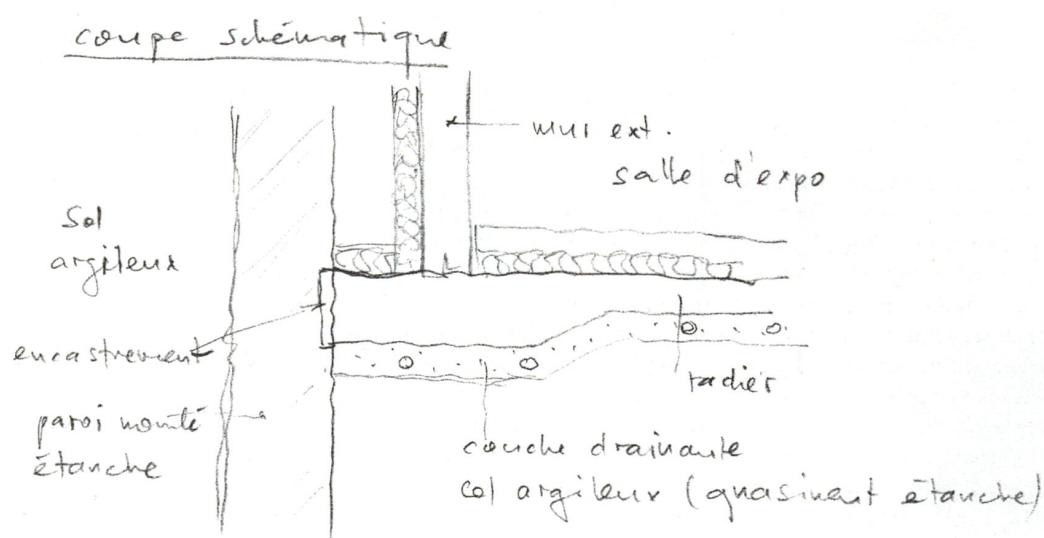 coupe schématique
mur ext.
salle d'expo
Sol
argileux
encastrement
radier
paroi
étanche
couche drainante
sol argileux (quasiment étanche)